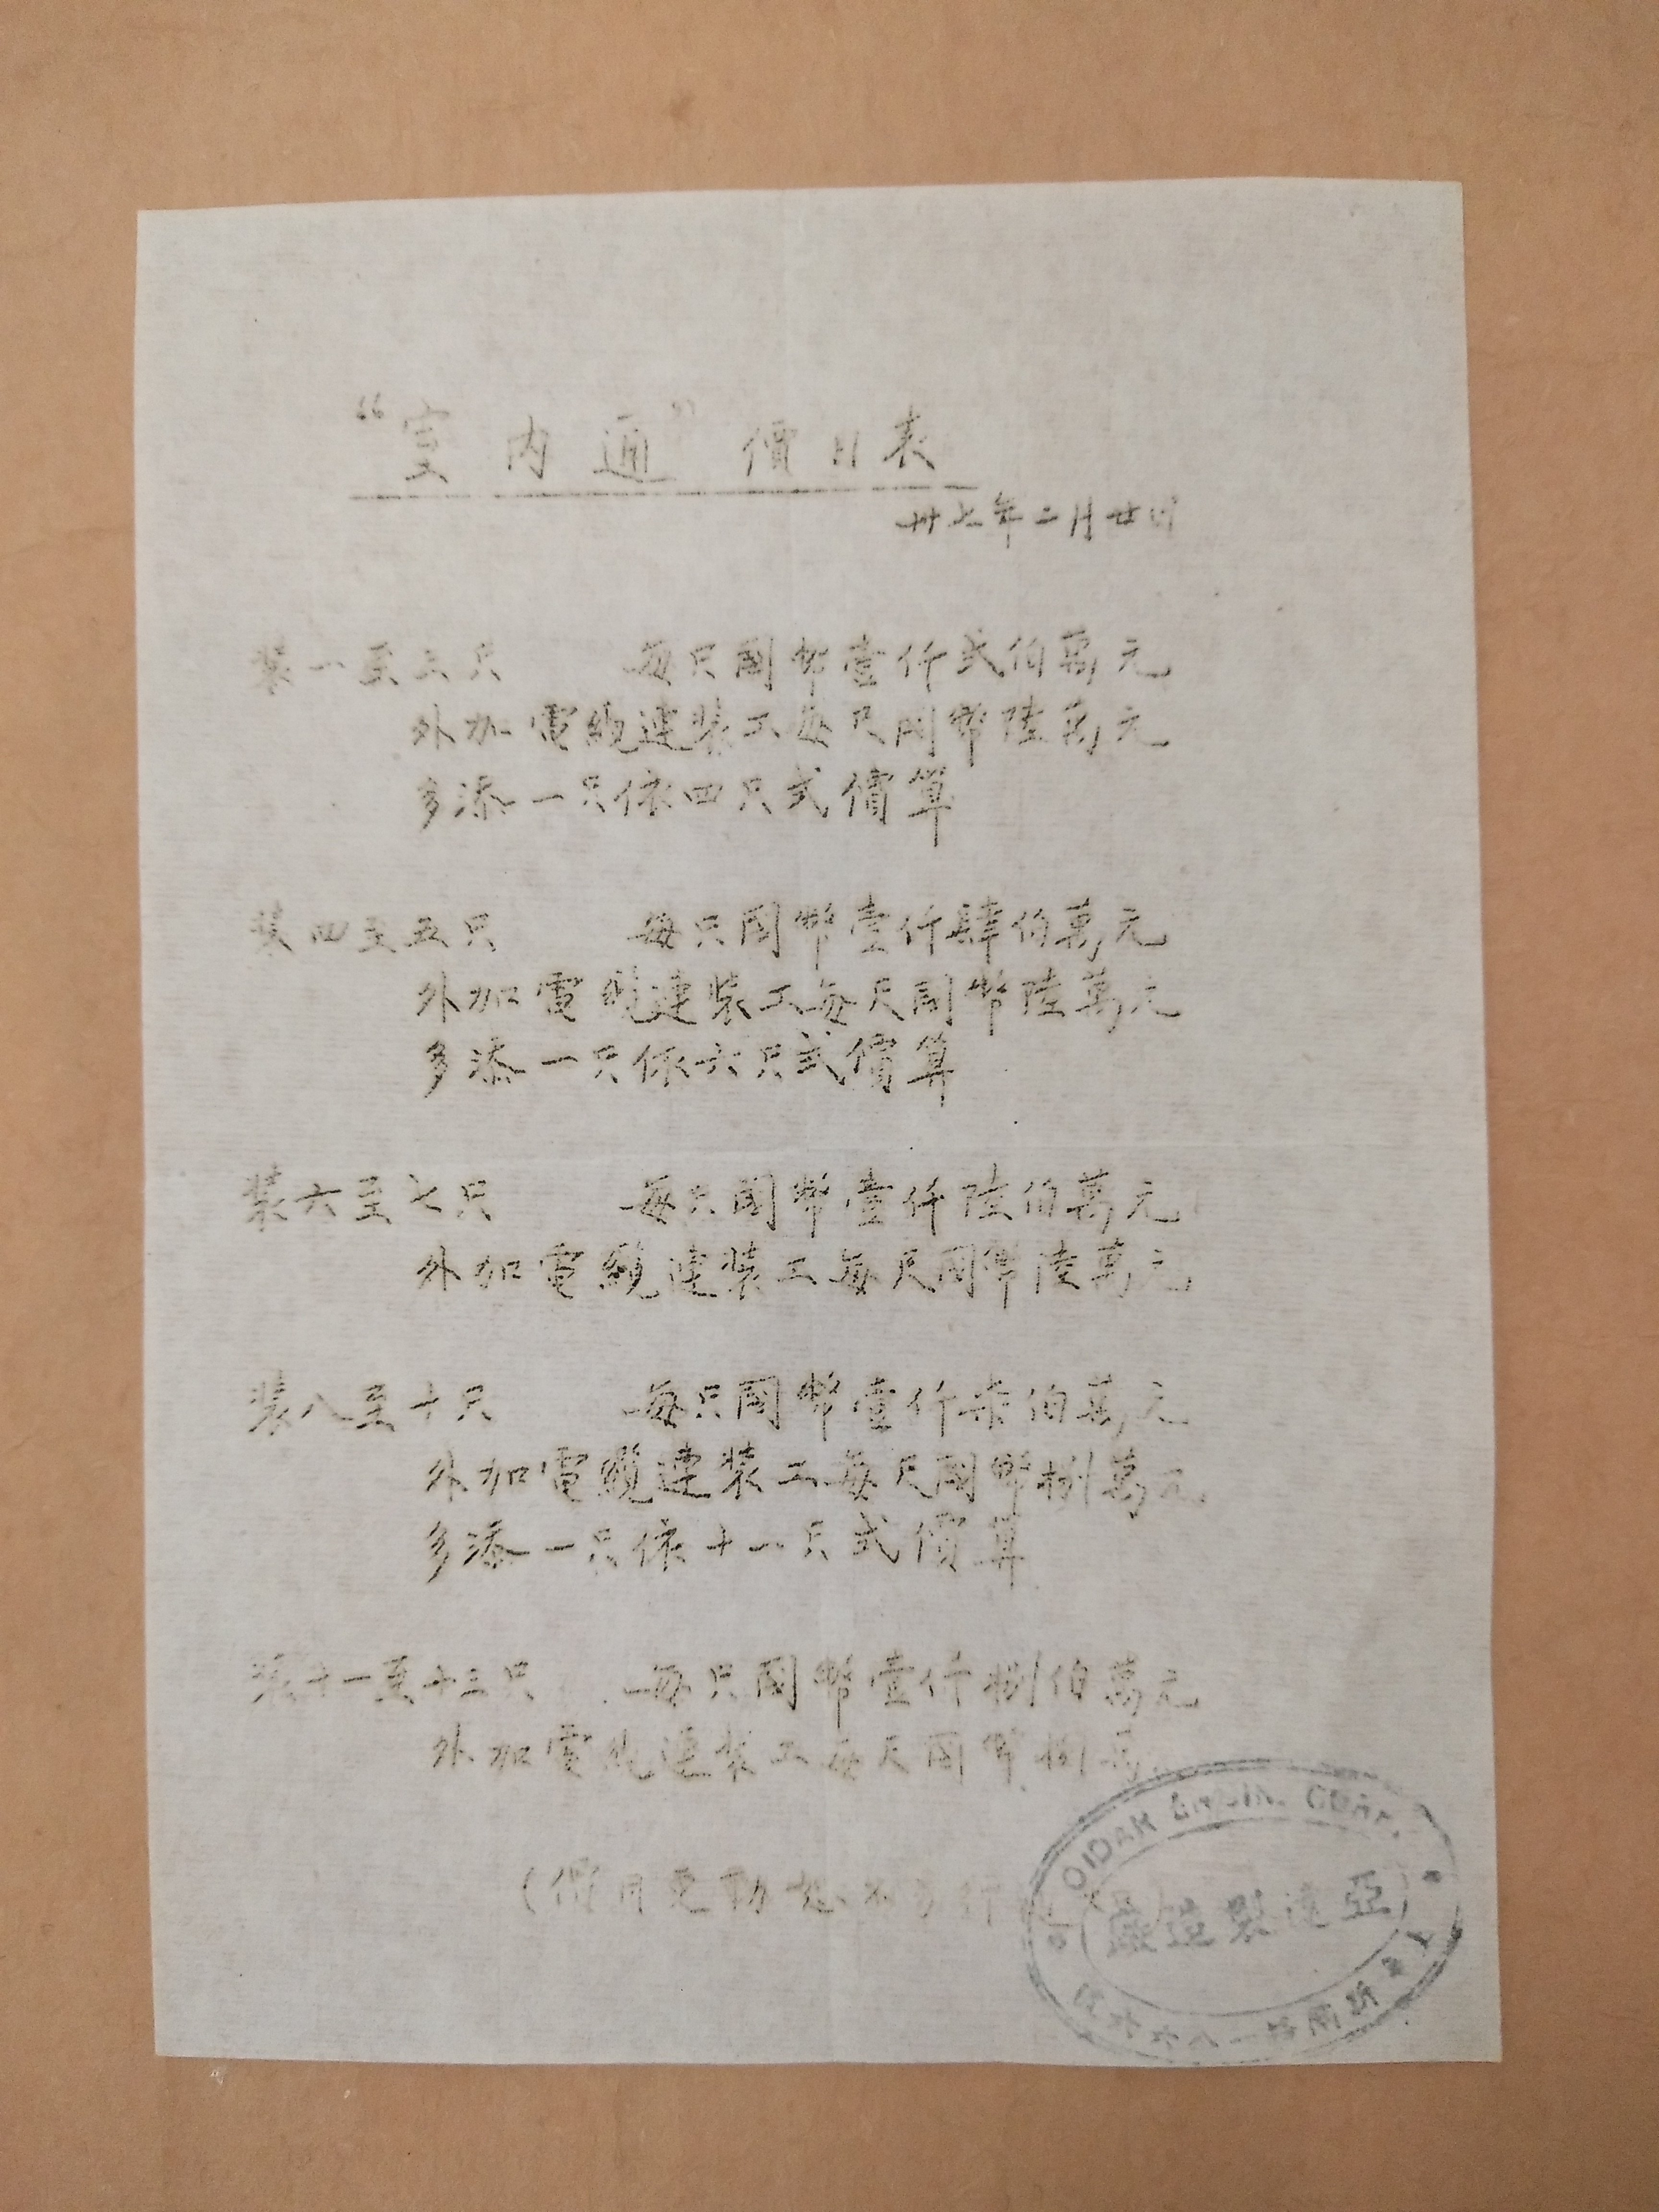 “室內通”價目表
卅七年二月廿日
裝一至三只 每只國幣壹仟弍伯萬元
外加電纜連裝工每尺國幣陸萬元
多添一只依四只式價算
裝四至五只 每只國幣壹仟肆伯萬元
外加電纜連裝工每尺國幣陸萬元
多添一只依六只式價算
裝六至七只 每只國幣壹仟陸伯萬元
外加電纜連裝工每尺國幣陸萬元
裝八至十只 每只國幣壹仟柒伯萬元
外加電纜連裝工每尺國幣捌萬元
多添一只依十一只式價算
裝十一至十三只 每只國幣壹仟捌伯萬元
外加電纜連裝工每尺國幣捌萬
(價目更動恕不另行
RADIO
亞達製造廠